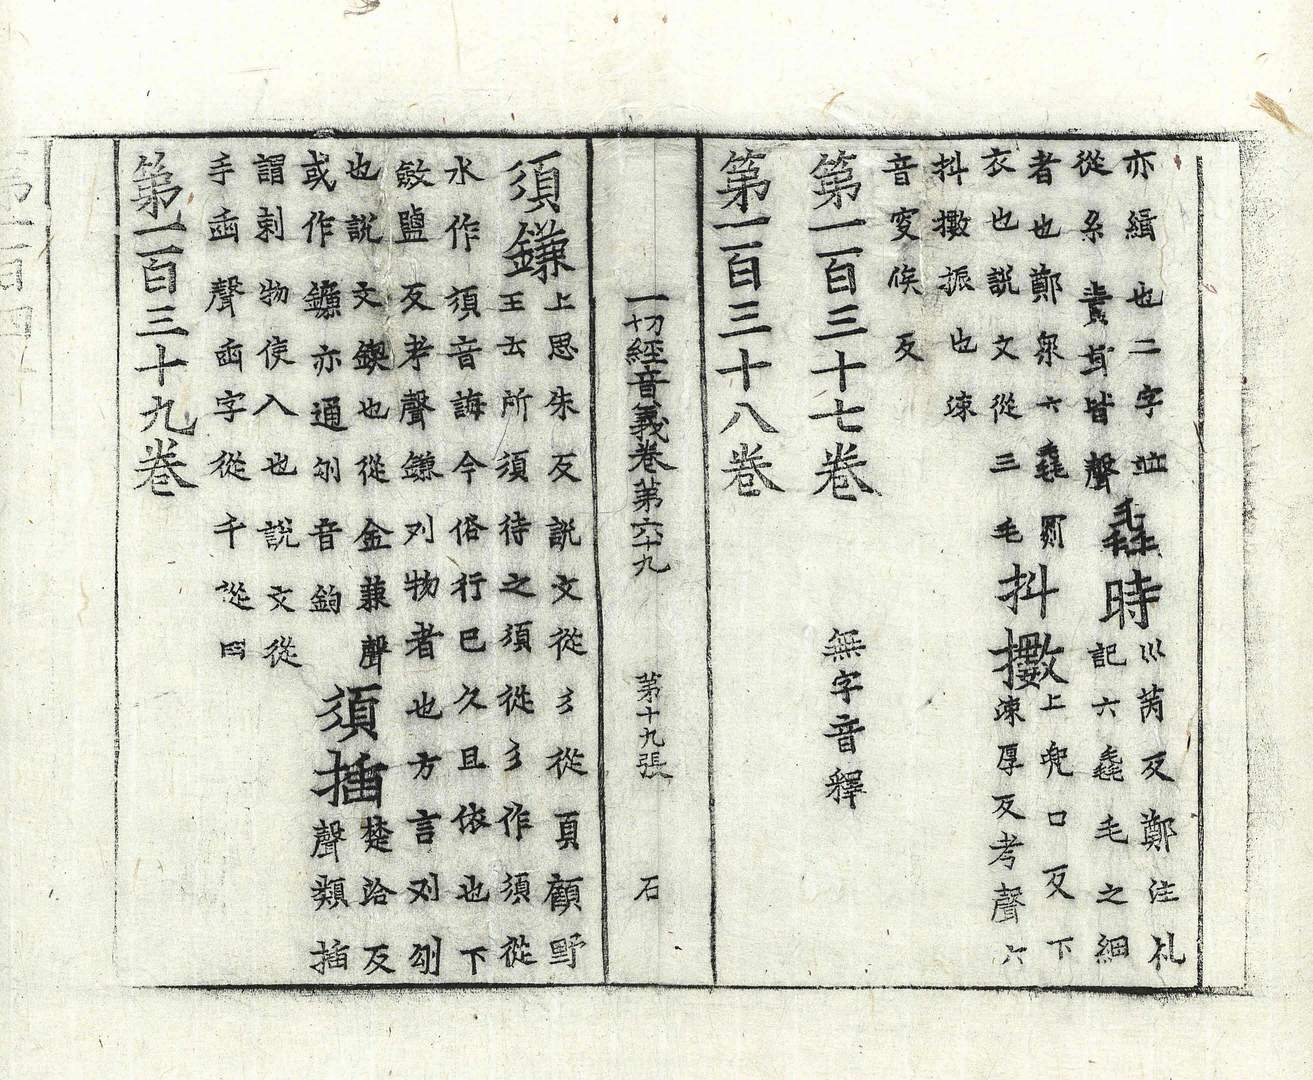 亦緝也二字並
從糸責咠皆聲
毳時
川芮反鄭注礼
記六毳毛之細
者也鄭眾云毳罽
衣也說文從三毛
抖擻
上兜口反下
涑厚反考聲云
抖擻振也涑
音叜俟反
第一百三十七卷 無字音釋
第一百三十八卷
一切經音義卷第六十九 第十九張 石
須鎌
上思朱反說文從彡從頁顧野
王云所須待之須從彡作須從
水作湏音誨今俗行巳久且依也下
斂鹽反考聲鎌刈物者也方言刈刟
也說文鍥也從金兼聲
或作鐮亦通刟音鉤
須插
楚洽反
聲類插
謂刺物使入也說文從
手臿聲臿字從千從臼
第一百三十九卷